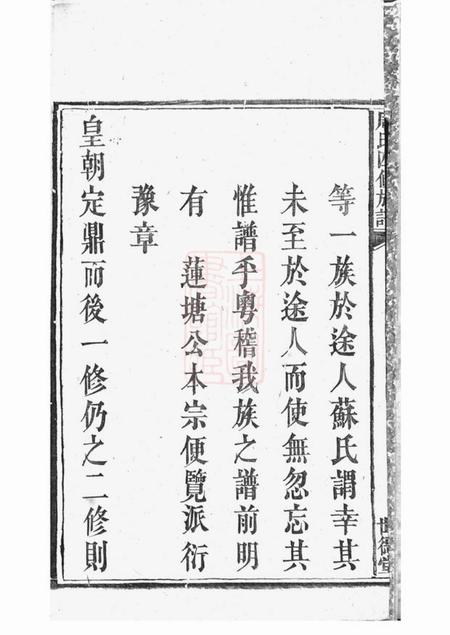 等一族於途人蘇氏謂幸其
未至於途人而使無忽忘其
惟譜乎粵稽我族之譜前明
有 蓮塘公本宗便覽派衍
豫章
皇朝定鼎而後一修仍之二修則
氏四修族譜
世德堂